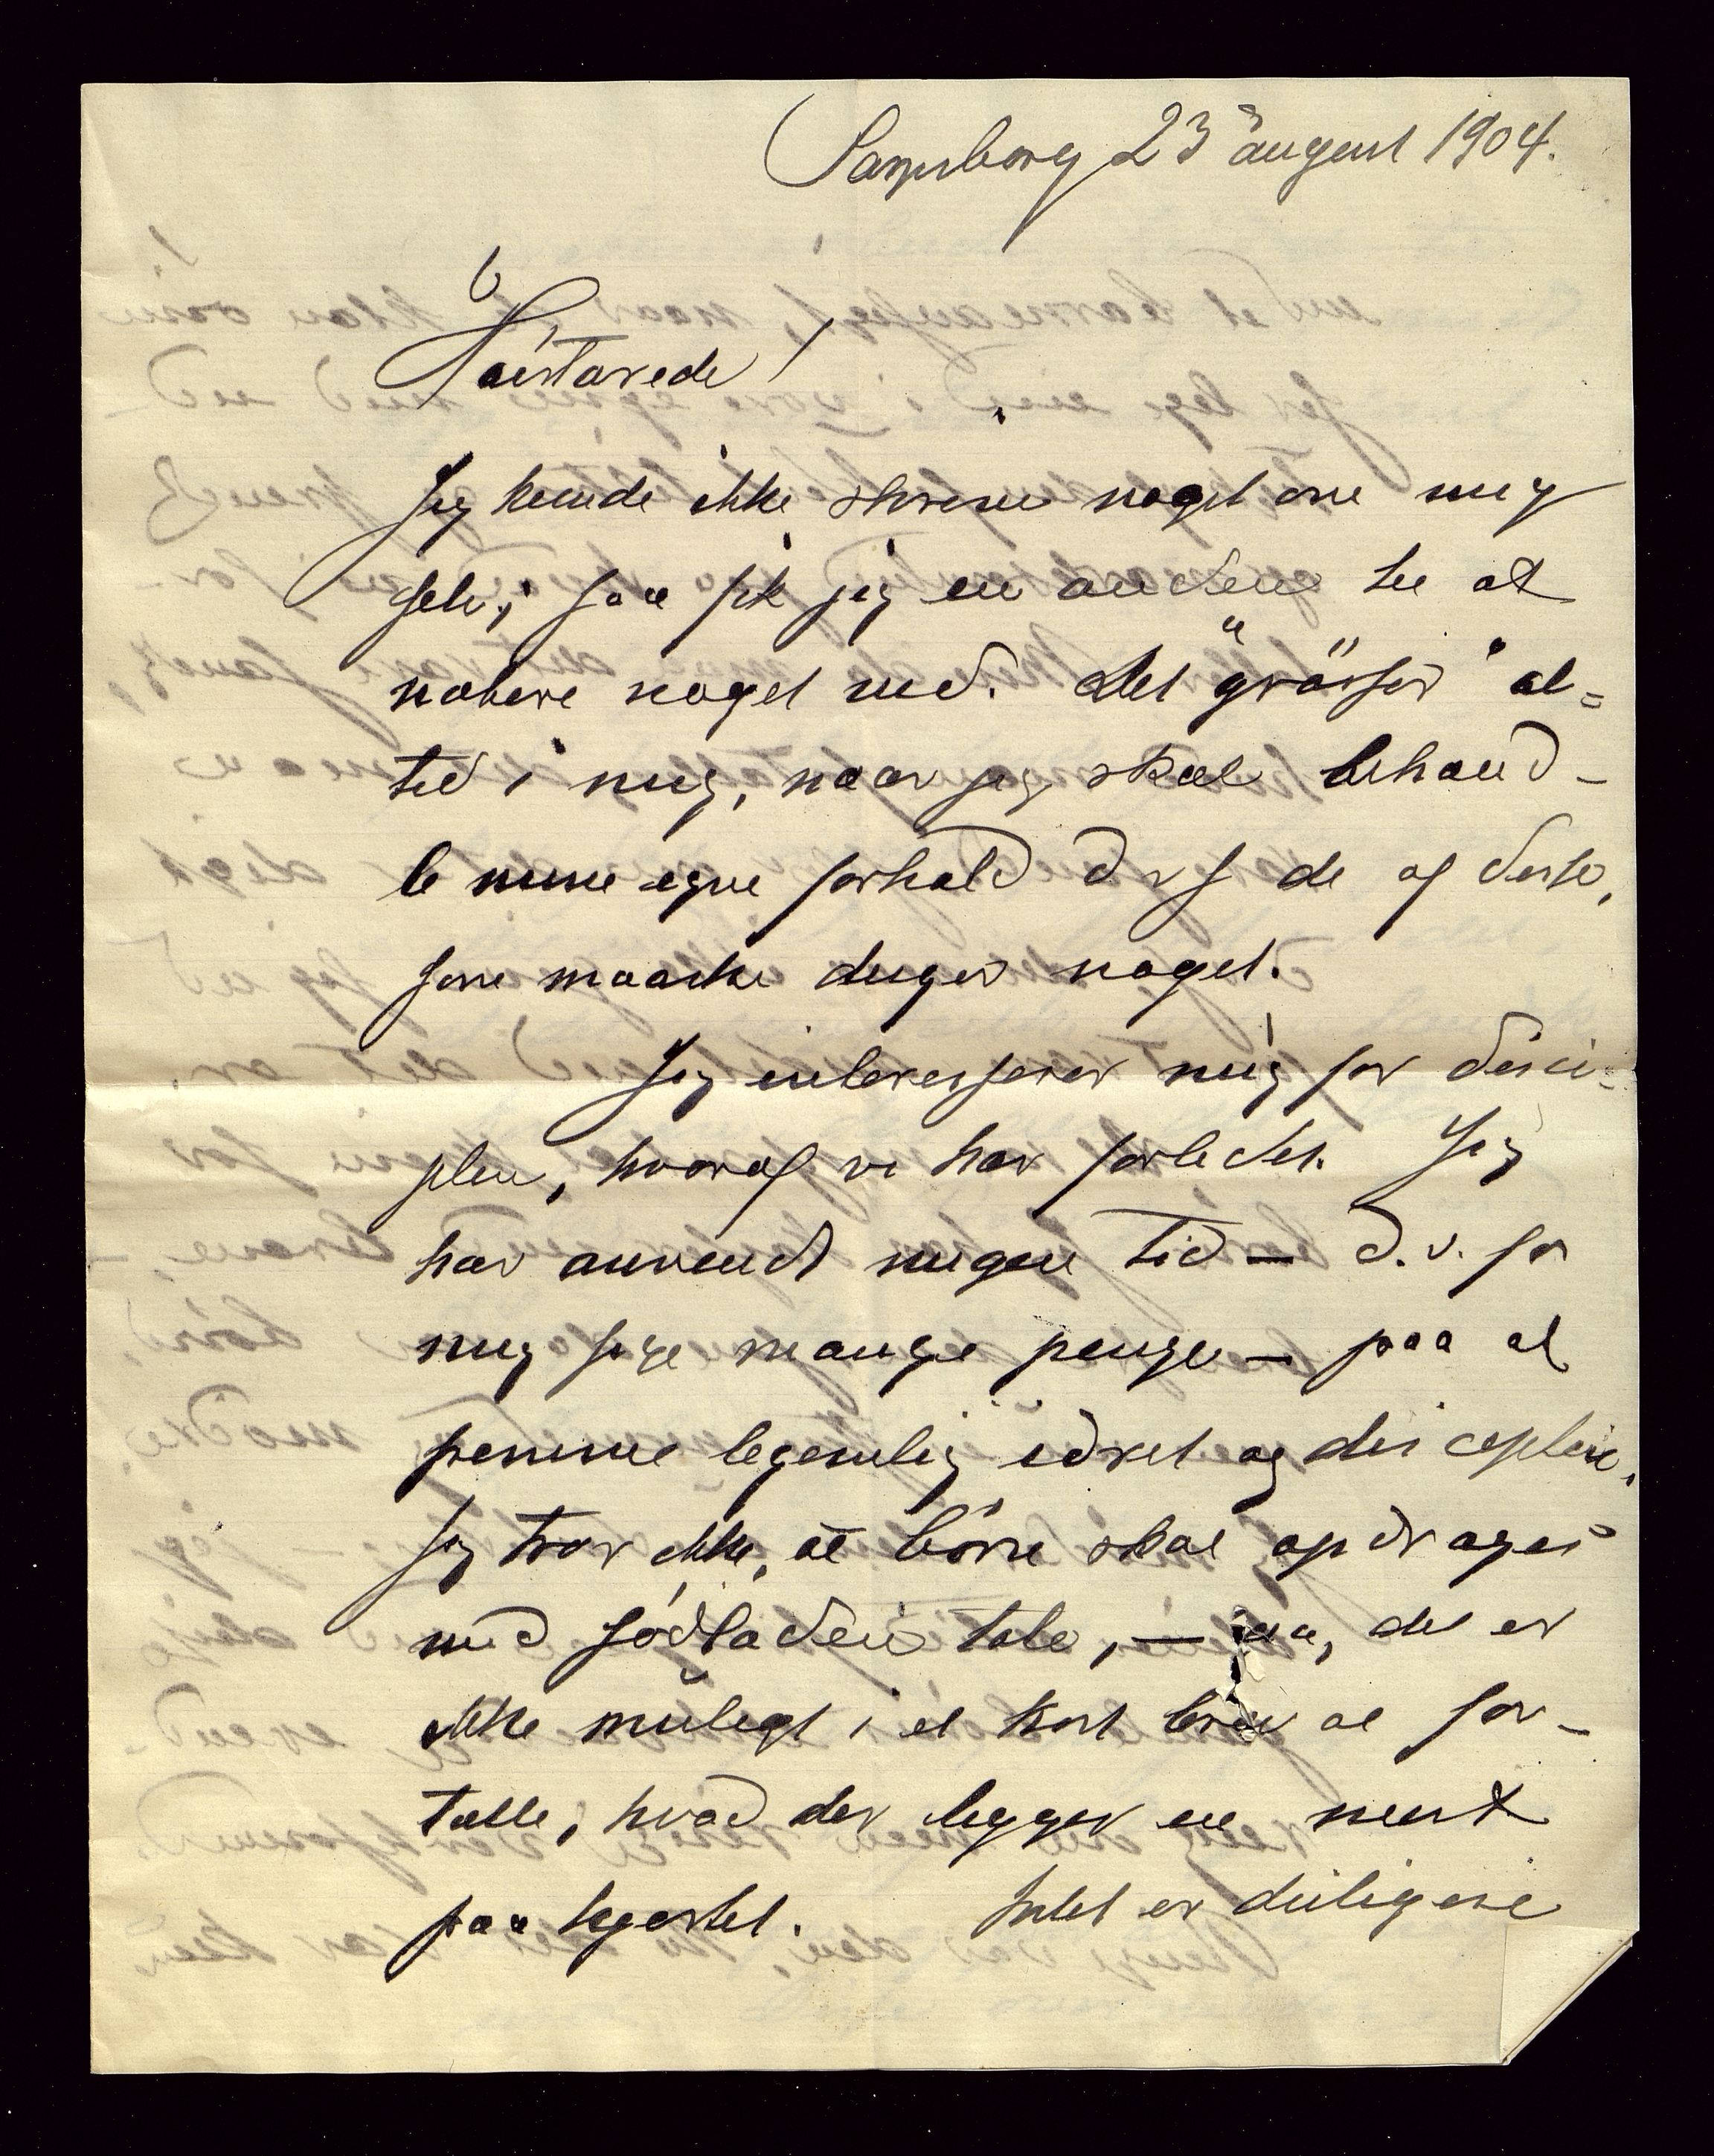 Sarpsborg 23 august 1904.
Höistærede!
Jeg kunde ikke skrive noget om mig
selv; saa fik jeg en anden til at
notere noget ned. Det "grösser" al=
tid i mig, naar jeg skal behand-
le mine egne forhold d v s de af disse,
som maaske duger noget.
Jeg interesserer mig for disci-
plin, hvoraf vi har forlidet. Jeg
har anvendt megen tid — d. v. s
mig sige mange penge — paa at
fremme legemlig idræt og disciplin.
Jeg tror ikke, at börn skal opdrages
med södladen tale, — naa, det er
ikke muligt i et kort brev at for-
tælle, hvad der ligger en mest
paa hjertet. Intet er deiligere